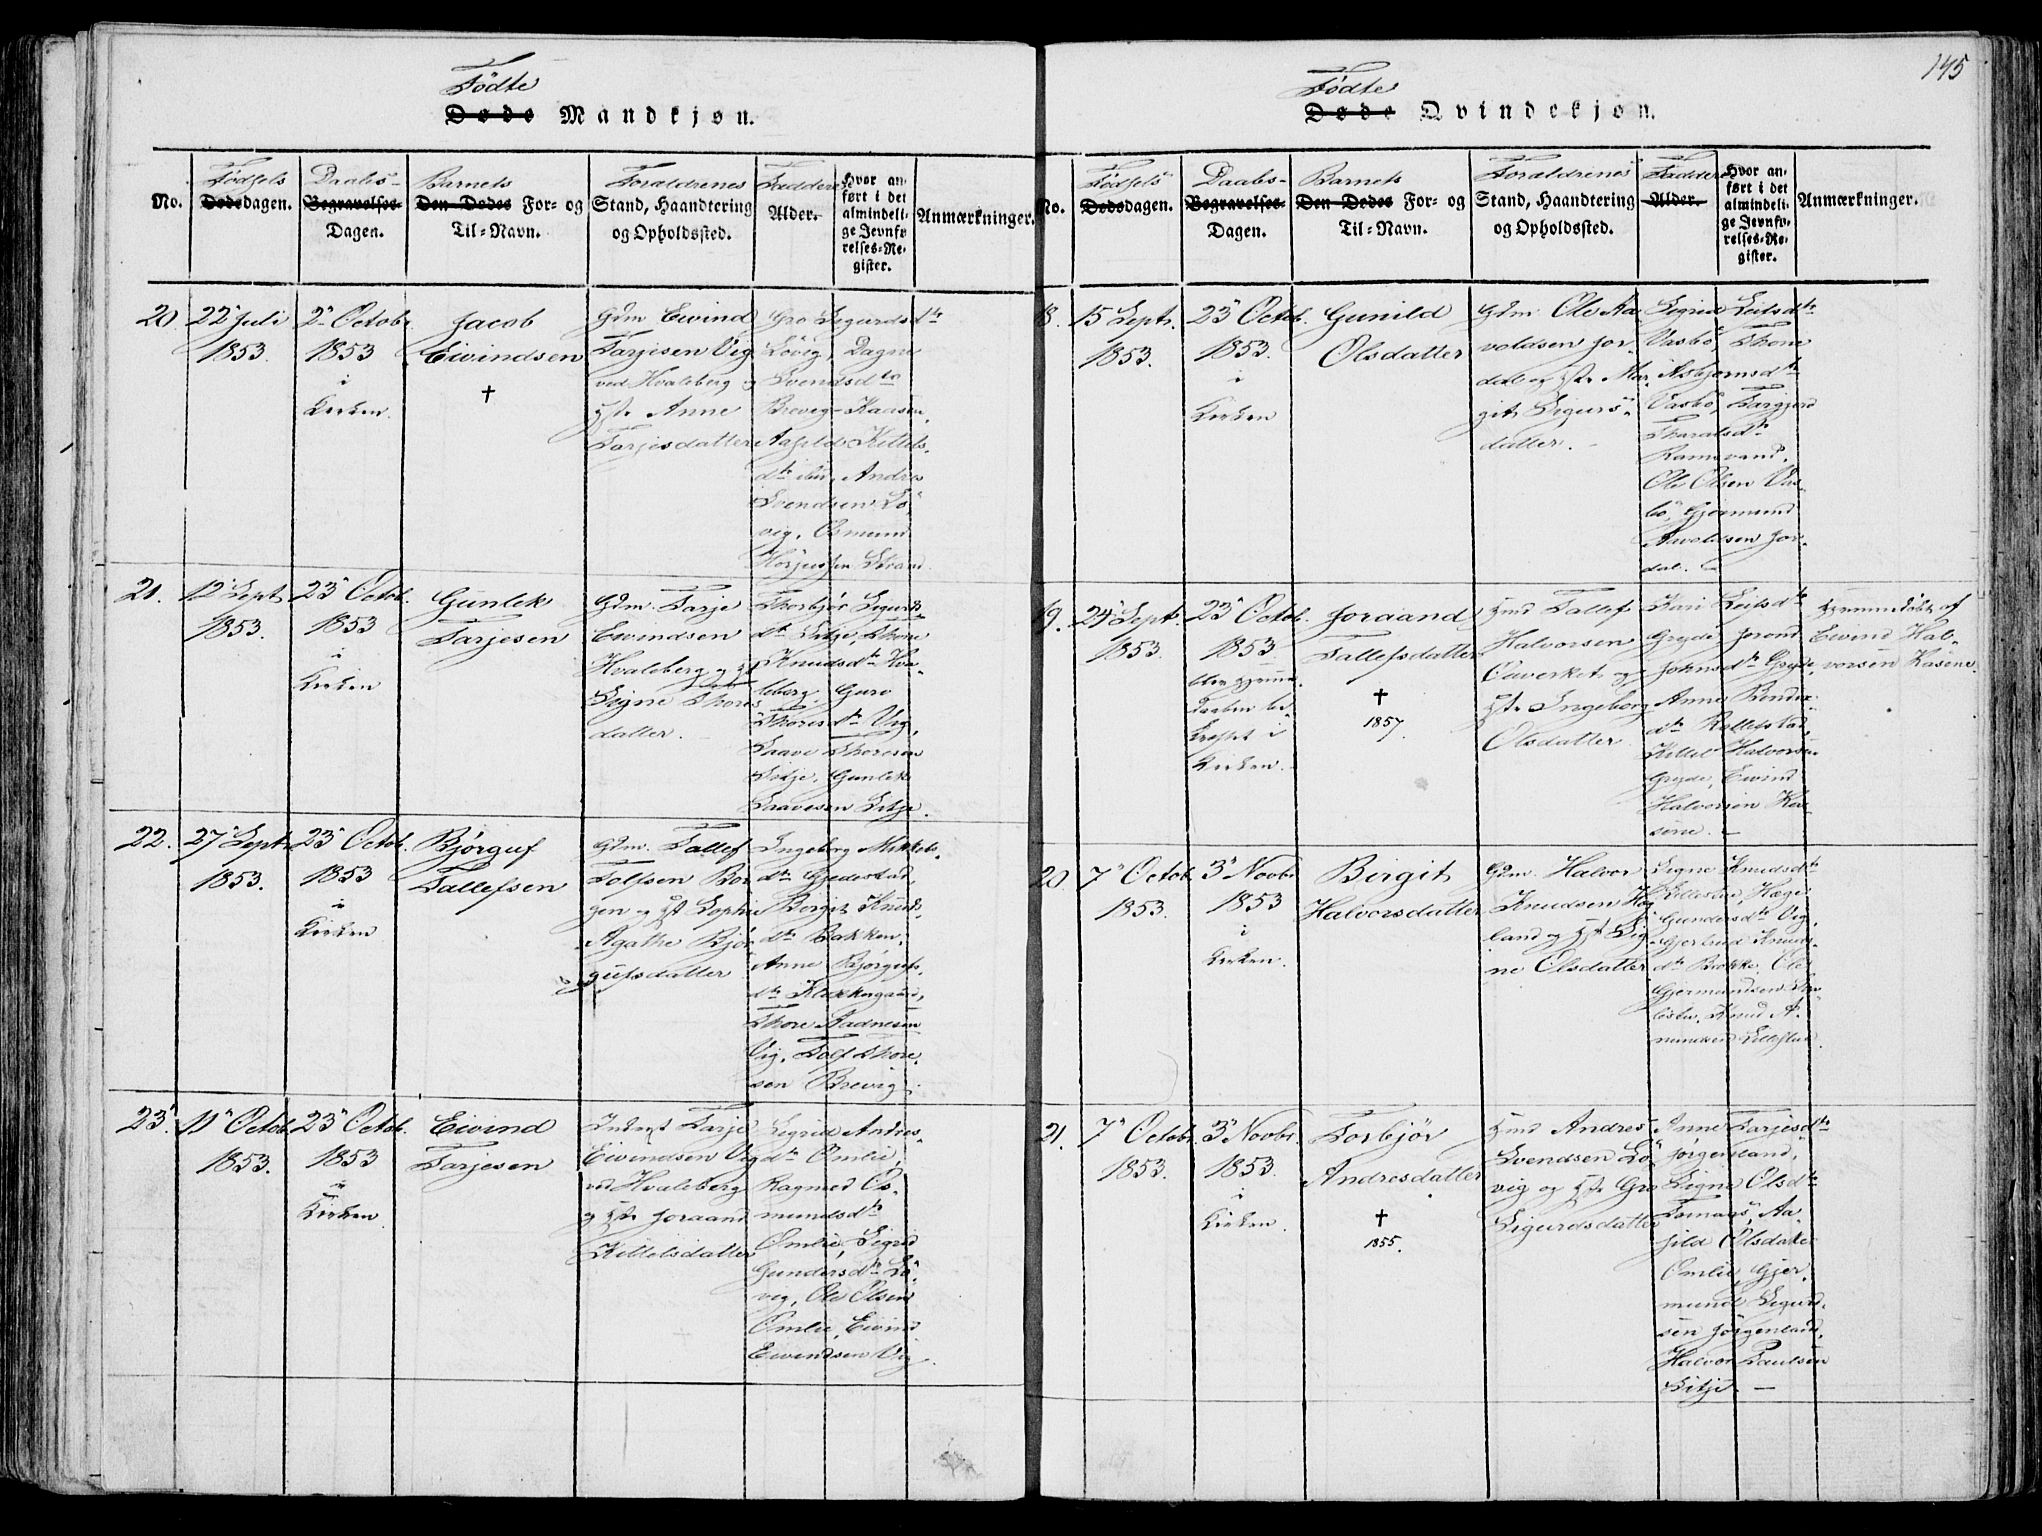 145
Fødte
Døde Mandkjøn.
No.
Fødsels
Dødsdagen.
Daabs-
Begravelses-
Dagen.
Barnets
Den Dødes For- og
Til-Navn.
Foraldrenes
Stand, Haandtering
og Opholdssted.
Faddere
Alder.
Hvor an-
ført i det
almindeli-
ge Jevnfø-
relses-Re-
gister.
Anmærkninger.
20
22 Juli
1853.
2" Octobr.
1853
i
Kirken.
Jacob
Eivindsen
†
Gdm Eivind
Tarjesen Vig
ved Hvaleberg og
Hst. Anne
Tarjesdatter
Gro Sigurdsdtr
Løvig, Dagne
Svendsdtr
Brevig-Kaasen,
Aasild Kittels-
dtr ibid, Andres
Svendsen Lø-
vig, Osmund
21.
12" Sept.
1853.
23" Octob.
1853
i
Kirken
Gunlek
Tarjesen
Gdm. Tarje
Eivindsen
Hvaleberg og Hst
Signe Thores-
datter.
Thorbjør Sigurds-
dtr Litje, Thore
Knudsdtr Hva-
leberg, Guro
Thoresdtr Vig,
Saave Thoresen
Litje, Gunlek
Saavesen Litje.
22.
27" Septr.
1853.
23" Octob.
1853
i
Kirken
Bjørguf
Tallefsen
Gdm. Tallef
Tolfsen Bor-
gen og Hst Sophie
Agathe Bjør-
gufsdatter
Ingeborg Mikkels-
dtr Gjedestad,
Borgit Knuds-
dtr Bakken,
Anne Bjørgufs-
dtr Klokkergaard,
Thore Aadnesen
Vig, Tolf Thore-
sen Brevig.
23.
11" Octob.
1853.
23" Octob.
1853
i
Kirken
Eivind
Tarjesen
Inderst Tarje
Eivindsen Vig
ved Hvaleberg
og Hst. Joraand
Kittelsdatter
Sigrid Andres-
dtr Omlie,
Ragned Os-
mundsdtr
Omlie, Sigrid
Gundersdtr Lø-
vig, Ole Olsen
Omlie, Eivind
Eivendsen Vig.
Fødte
Døde Qvindekjøn.
No.
Fødsels
Dødsdagen.
Daabs-
Begravelses-
Dagen.
Barnets
Den Dødes For- og
Til-Navn.
Foraldrenes
Stand, Haandtering
og Opholdssted.
Faddere
Alder.
Hvor an-
ført i det
almindeli-
ge Jevnfø-
relses-Re-
gister.
Anmærkninger.
8.
15 Septr.
1853.
23" Octob.
1853.
i
Kirken
Gunild
Olsdatter
Gdm. Ole Aa-
voldsen Jor-
dal og Hst. Mar-
git Sigurs-
datter.
Sigrid Leifsdtr
Vasbø, Thone
Asbjørnsdtr
Vasbø, Targjerd
Tharalsdtr
Ramsvand,
Ole Olsen Vas-
bø, Gjermund
Aavoldsen Jor-
dal.
19.
24" Sept.
1853.
23" Octob.
1853
blev hjemme-
daaben be-
kræftet i
Kirken.
Joraand
Tallefsdatter
†
1857.
Hmd Tallef
Halvorsen
Oaverket og
Hst. Ingeborg
Olsdatter
Kari Leifsdtr
Gryde, Jorond
Johnsdtr Gryde,
Anne
dtr Rollestad,
Kittel Halvorsen
Gryde, Eivind
Halvorsen Kaa-
sene.
Hjemmedøbt af
Eivind Hal-
vorsen Kasene
20
7" Octob.
1853.
3" Novbr
1853
i
Kirken.
Birgit
Halvorsdatter
Gdm. Halvor
Knudsen Hog-
land og Hst Sig-
ne Olsdatter
Signe Knudsdtr
Lillestue, Hæge
Gundersdtr Vig,
Gjertrud Knuds-
dtr Brokke, Ole
Gjermundsen
Knud A-
mundsen Lillestue.
21.
7" Octobr
1853.
3" Novbr.
1853.
i
Kirken.
Torbjør
Andresdatter
†
1855.
Hmd Andres
Svendsen Lø-
vig og Hst. Gro
Sigurdsdatter
Anne Tarjesdtr
Jørgenland,
Signe Olsdtr
Tomaas, Aa-
sild Olsdatter
Omlie, Gjer-
mund Sigurd-
sen Jørgenland,
Halvor Paulsen
Litje.